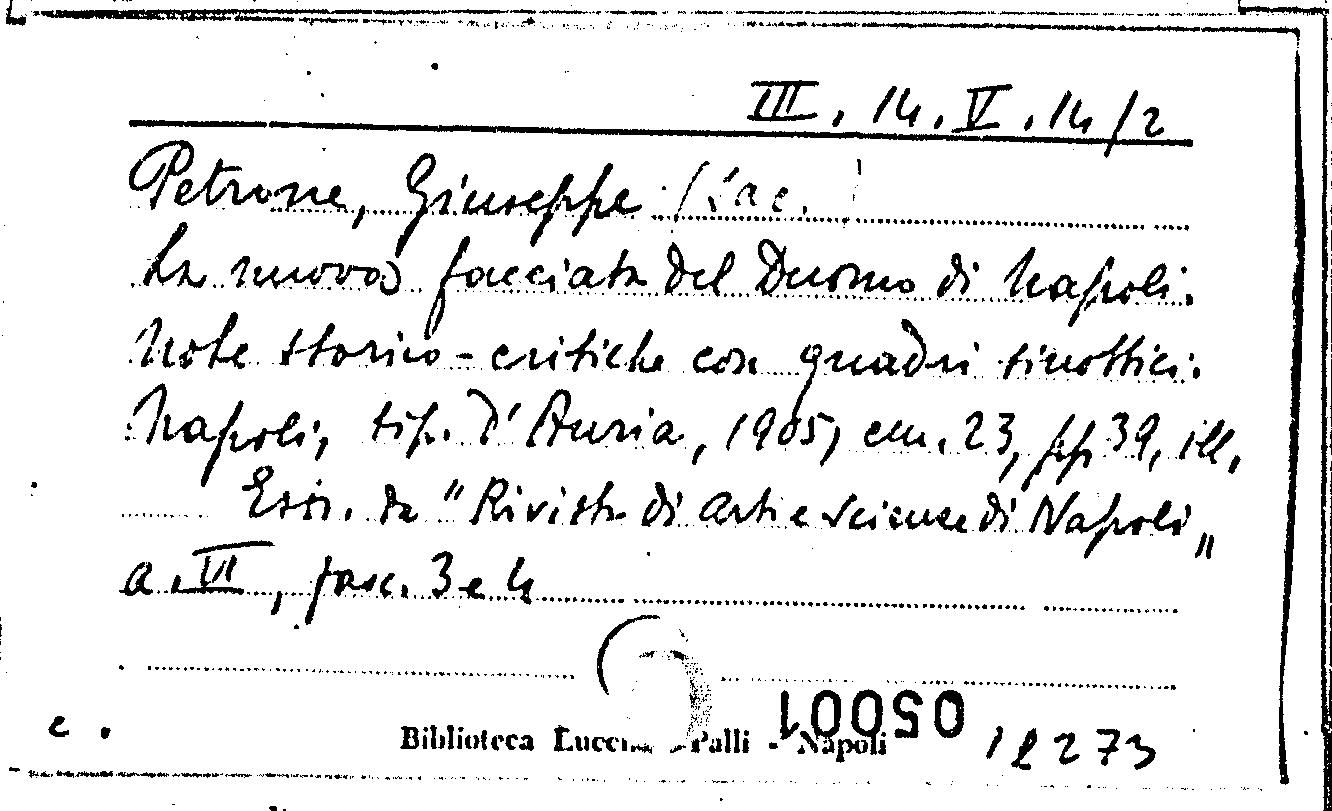 III. 14. V. 14/2
Petrone, Giuseppe (Sac.)
La nuova facciata del Duomo di Napoli.
Note storico-critiche con quadri sinottici.
Napoli, tip. d'Auria, 1905, cm. 23, pp 39, ill.
Estr. da "Rivista di arti e scienze di Napoli"
a. VI, fasc. 3 e 4
05001
c. Biblioteca Lucchesi Palli - Napoli 12273